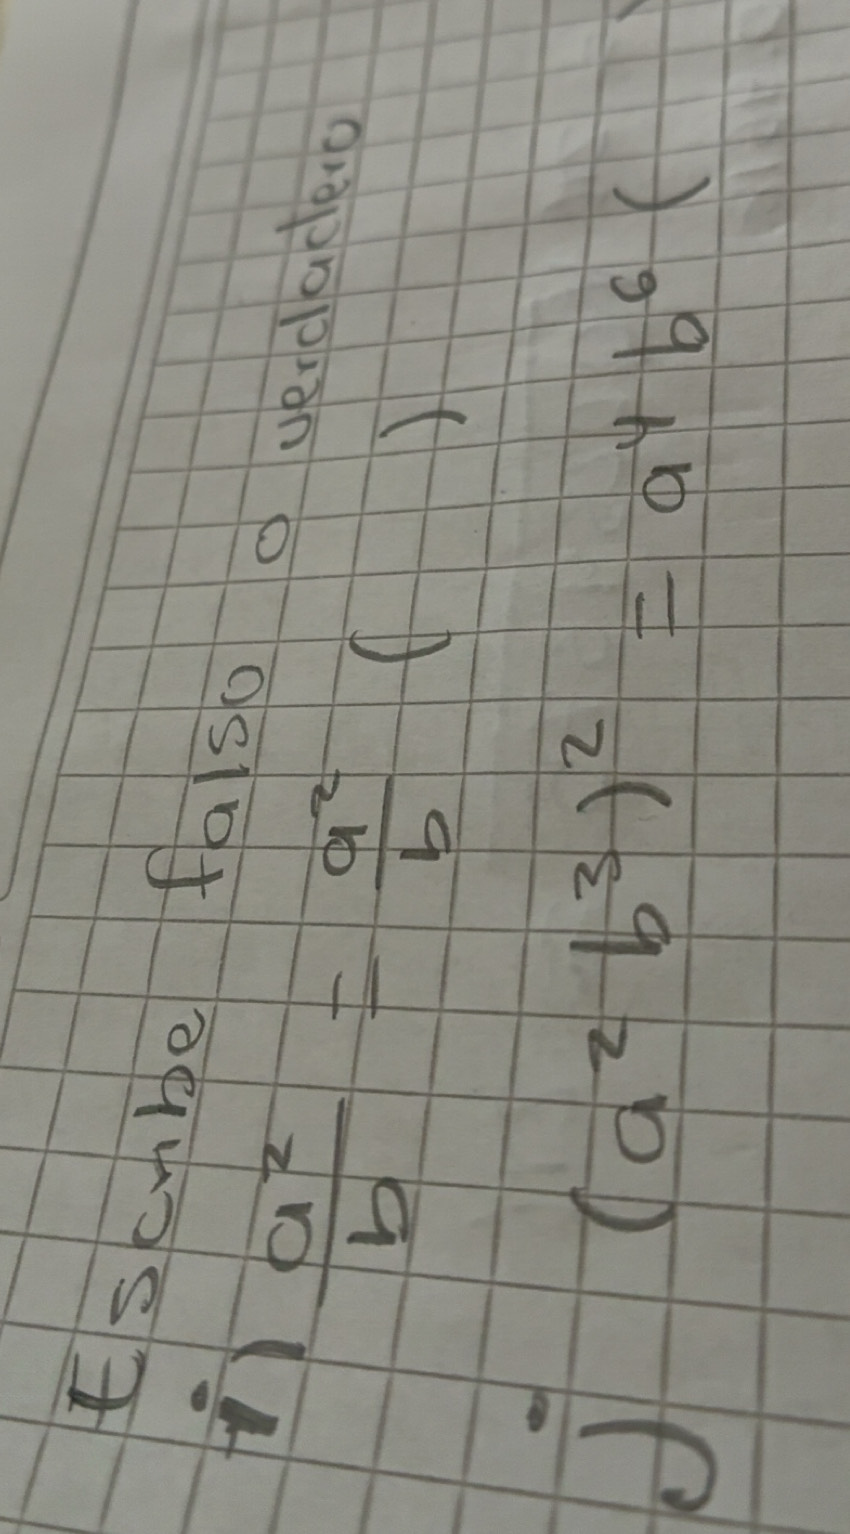 Escribe falso o verdadero
i) a²/b = a²/b ( )
j (a² b³)² = a⁴ b⁶ (